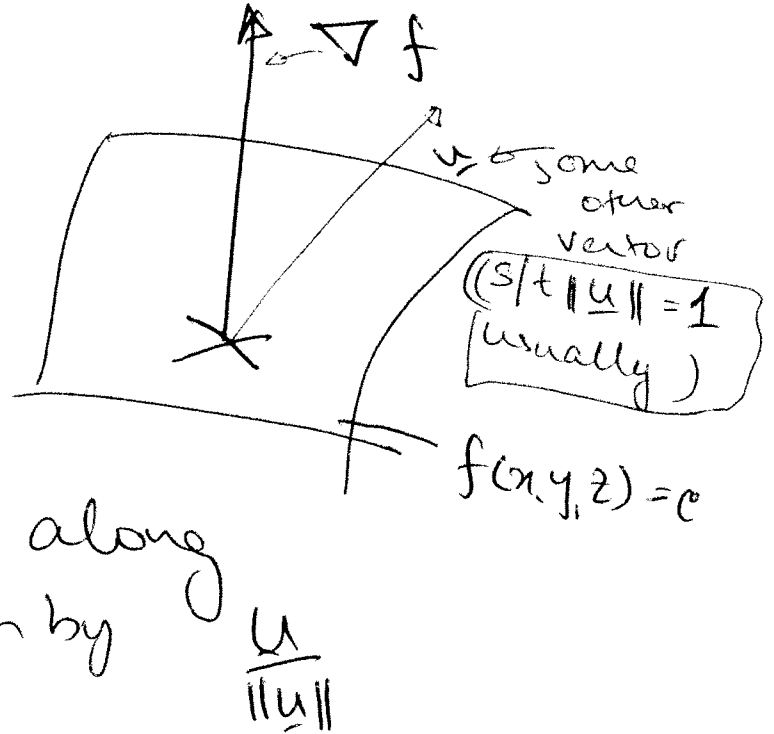 ∇ f
u some
other
vector
(s/t ‖u‖ = 1
usually)
f(x,y,z) = c
along
by
u
‖u‖